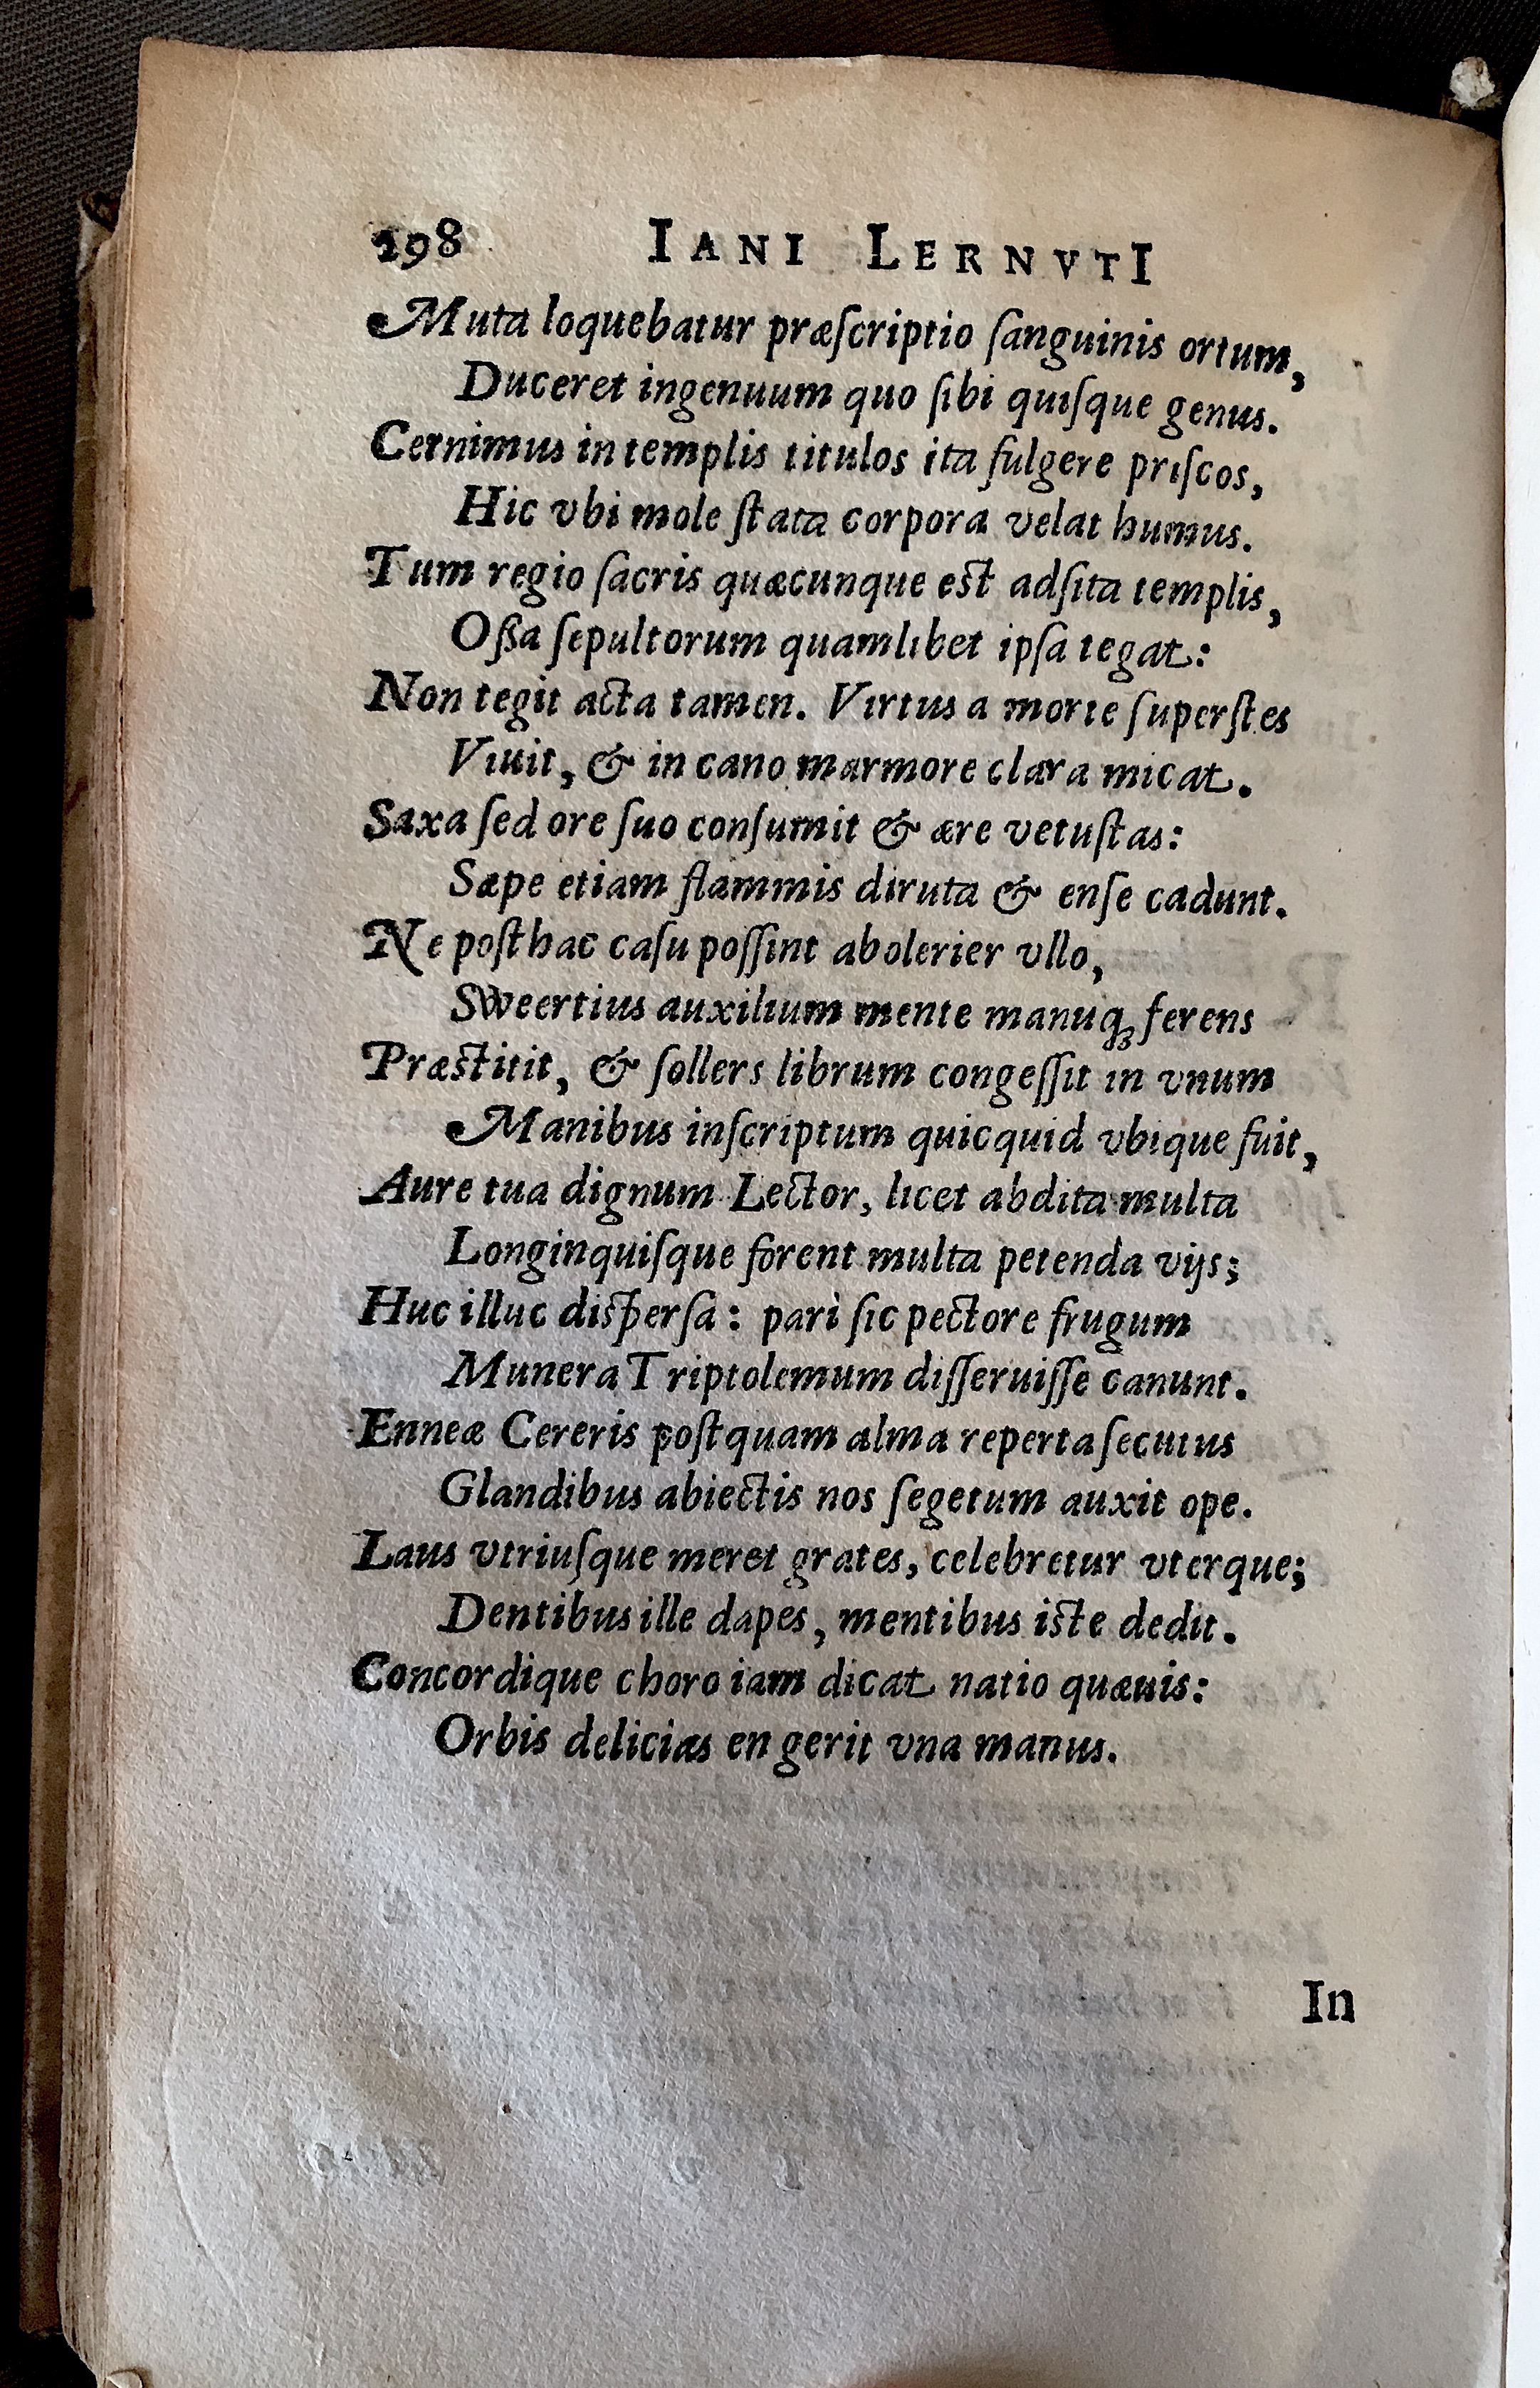 298 IANI LERNVTI
Muta loquebatur præſcriptio ſanguinis ortum,
Duceret ingenuum quo ſibi quiſque genus.
Cernimus in templis titulos ita fulgere priſcos,
Hic vbi mole ſtata corpora velat humus.
Tum regio ſacris quæcunque eſt adſita templis,
Oſſa ſepultorum quamlibet ipſa tegat:
Non tegit acta tamen. Virtus a morte ſuperſtes
Viuit, & in cano marmore clara micat.
Saxa ſed ore ſuo conſumit & ære vetuſtas:
Sæpe etiam flammis diruta & enſe cadunt.
Ne poſthac caſu poſſint abolerier vllo,
Sweertius auxilium mente manuq; ferens
Præſtitit, & ſollers librum congeſſit in vnum
Manibus inſcriptum quicquid vbique fuit,
Aure tua dignum Lector, licet abdita multa
Longinquiſque forent multa petenda vijs;
Huc illuc diſperſa: pari ſic pectore frugum
Munera Triptolemum diſſeruiſſe canunt.
Enneæ Cereris poſtquam alma reperta ſecutus
Glandibus abiectis nos ſegetum auxit ope.
Laus vtriuſque meret grates, celebretur vterque;
Dentibus ille dapes, mentibus iſte dedit.
Concordique choro iam dicat natio quæuis:
Orbis delicias en gerit vna manus.
In